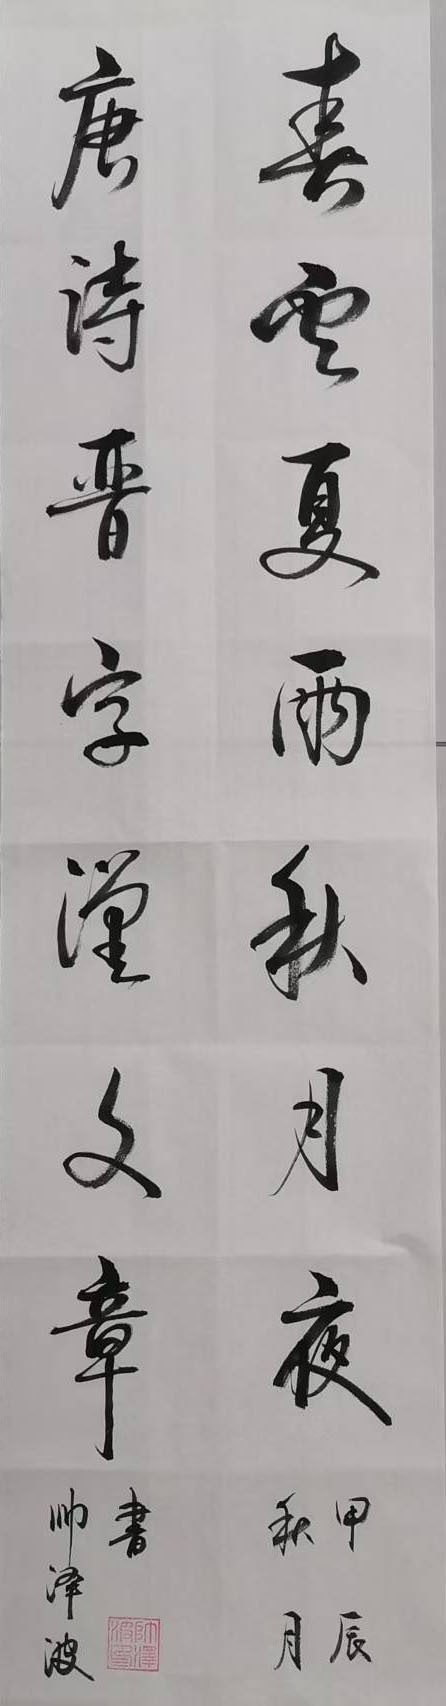 春雲夏雨秋月夜
甲辰
秋月
唐詩晉字漢文章
書
帅泽波
帅澤波印